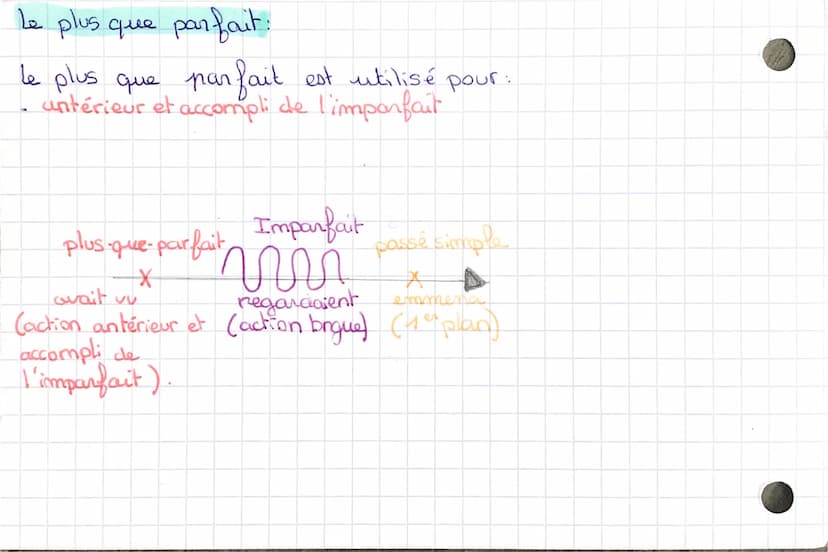 Le plus que parfait:
Le plus que parfait est utilisé pour:
. antérieur et accompli de l'imparfait
Imparfait
plus-que-parfait
passé simple
x
x
avait vu
regardaient
emmena
(action antérieur et
(action longue)
(1er plan)
accompli de
l'imparfait).